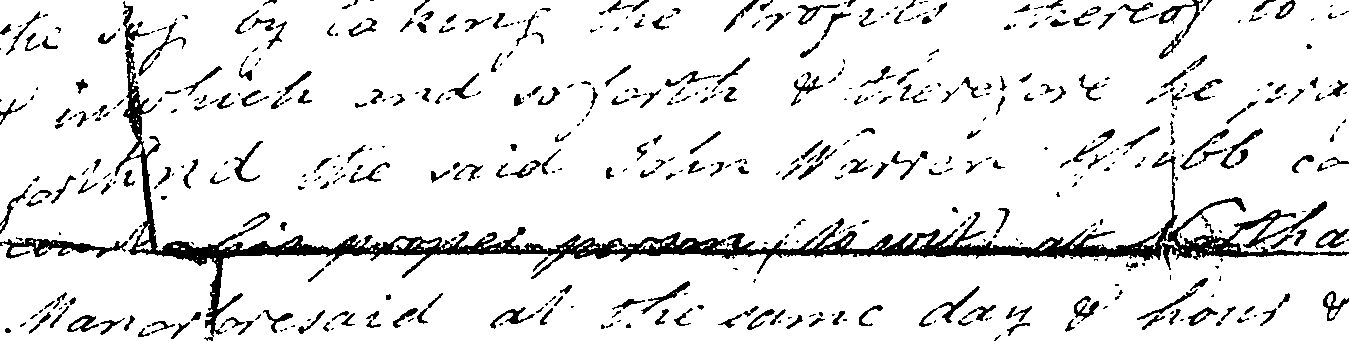 the by taking the Profits thereof to
& in which and so forth & therefore he pra
forth And the said John Warren Chubb co
Court in his proper person (to wit) at Northa
Manor foresaid at the same day & hour &